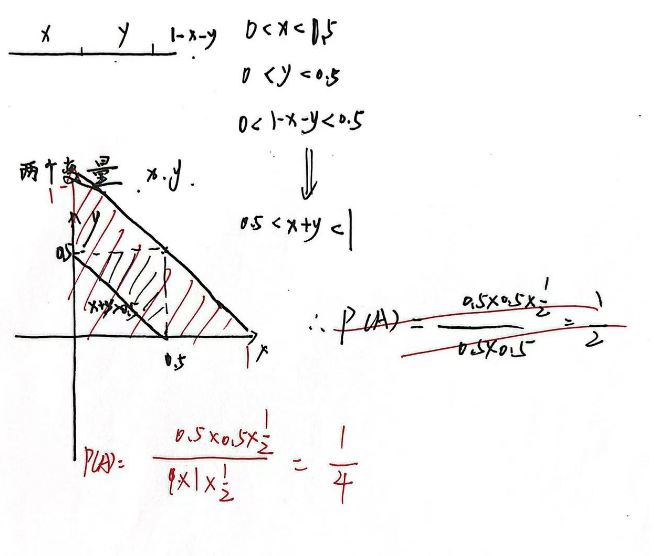 x y 1-x-y
0<x<0.5
0<y<0.5
0<1-x-y<0.5
⇓
0.5<x+y<1
两个变量 x.y.
1
y
0.5
x+y>0.5
0.5
1
x
∴ P(A) = (0.5×0.5×1/2)/(0.5×0.5) = 1/2
P(A) = (0.5×0.5×1/2)/(1×1×1/2) = 1/4